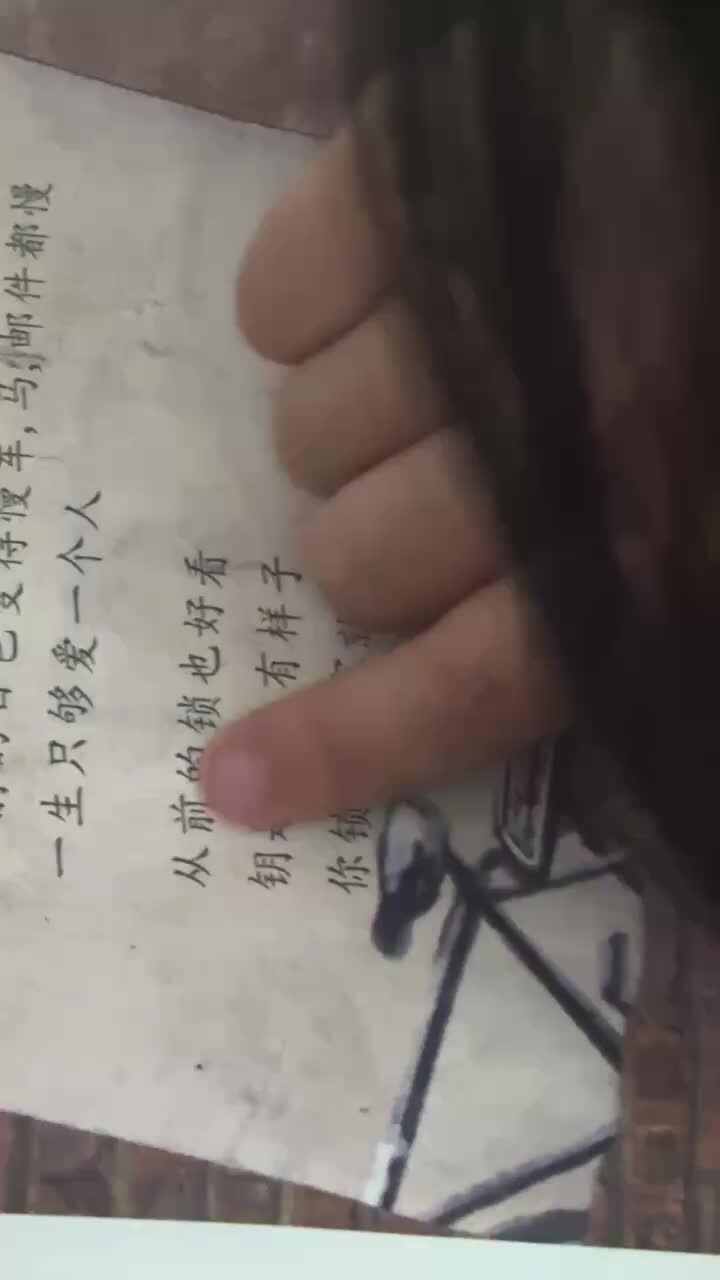 日色变得慢车,马,邮件都慢
一生只够爱一个人
从前的锁也好看
钥 有样子
你锁